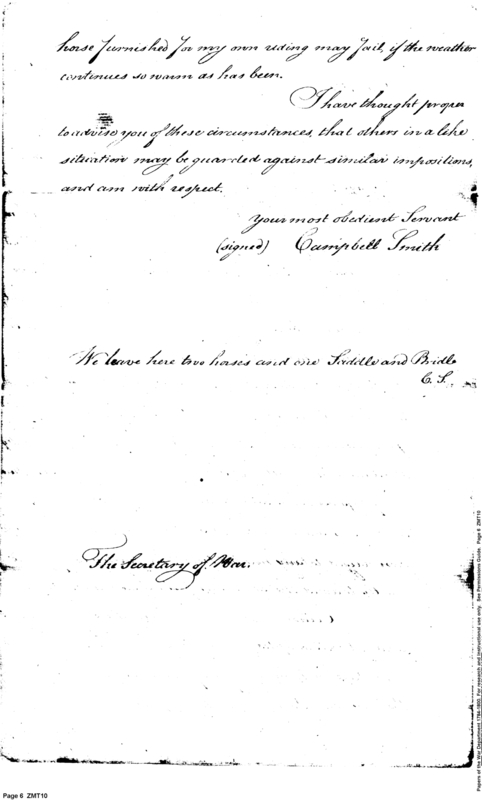 horse furnished for my own riding may fail, if the weather
continues so warm as has been.
I have thought proper
to advise you of these circumstances, that others in a like
situation may be guarded against similar impositions,
and am with respect.
your most obedient Servant
(signed) Campbell Smith
We leave here two horses and one Saddle and Bridle
C. S.
The Secretary of War.
Page 6 ZMT10
Papers of the War Department 1784-1800. For research and instructional use only. See Permissions Guide. Page 6 ZMT10